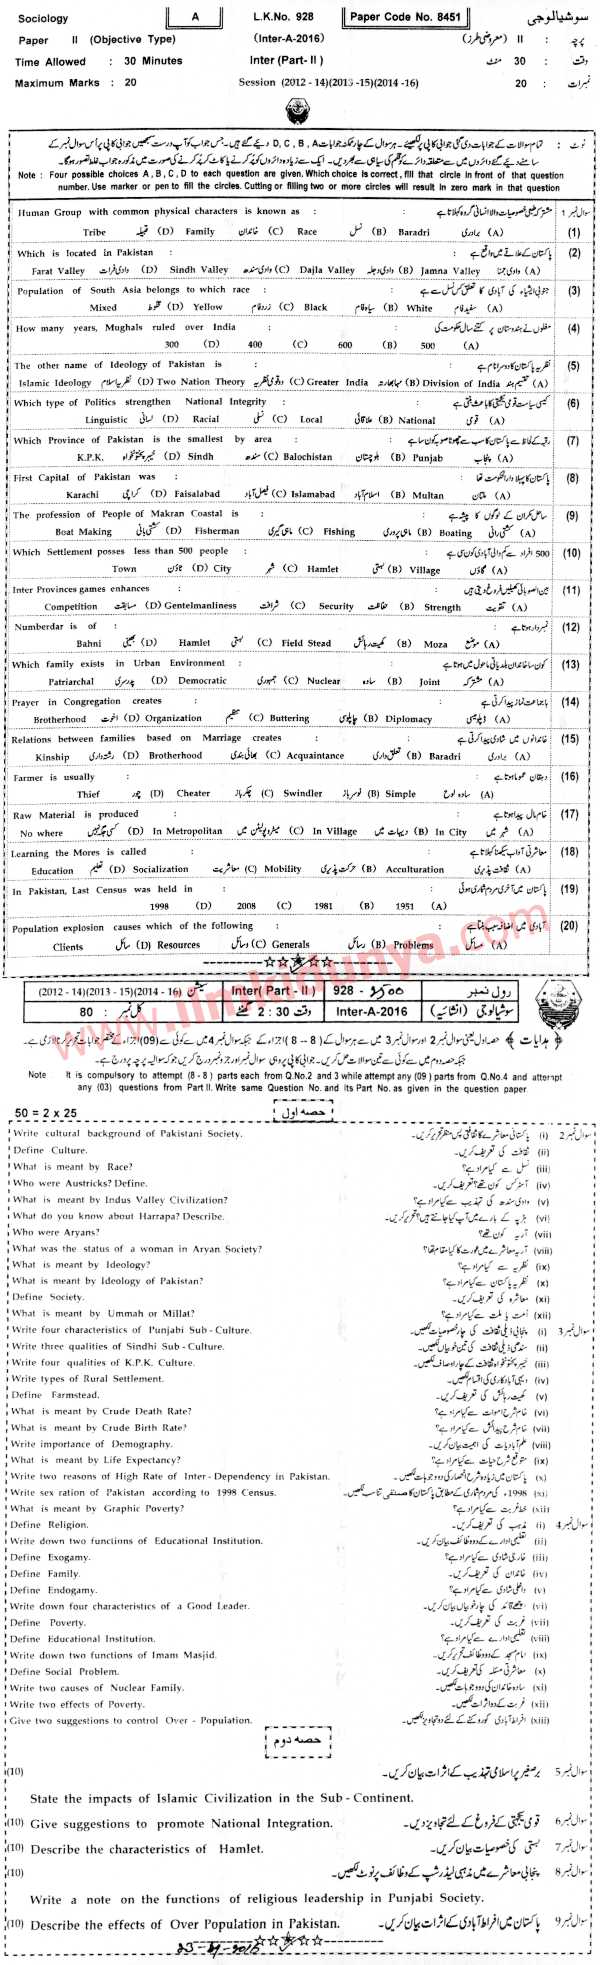 Sociology A L.K.No. 928 Paper Code No. 8451 سوشیالوجی
Paper II (Objective Type) (Inter-A-2016) پرچہ : II (معروضی طرز)
Time Allowed : 30 Minutes Inter (Part- II ) وقت : 30 منٹ
Maximum Marks : 20 Session (2012 - 14)(2013 -15)(2014 -16) نمبرات : 20
Note : Four possible choices A , B , C , D to each question are given. Which choice is correct , fill that circle in front of that question
number. Use marker or pen to fill the circles. Cutting or filling two or more circles will result in zero mark in that question
Human Group with common physical characters is known as : مشترکہ طبعی خصوصیات والا انسانی گروہ کہلاتا ہے سوال نمبر 1
Tribe قبیلہ (D) Family خاندان (C) Race نسل (B) Baradri برادری (A) (1)
Which is located in Pakistan : پاکستان کے علاقے میں واقع ہے (2)
Farat Valley وادی فرات (D) Sindh Valley وادی سندھ (C) Dajla Valley وادی دجلہ (B) Jamna Valley وادی جمنا (A)
Population of South Asia belongs to which race : جنوبی ایشیاء کی آبادی کا تعلق کس نسل سے ہے (3)
Mixed مخلوط (D) Yellow زرد فام (C) Black سیاہ فام (B) White سفید فام (A)
How many years, Mughals ruled over India : مغلوں نے ہندوستان پر کتنے سال حکومت کی (4)
300 (D) 400 (C) 600 (B) 500 (A)
The other name of Ideology of Pakistan is : نظریہ پاکستان کا دوسرا نام ہے (5)
Islamic Ideology نظریہ اسلام (D) Two Nation Theory دو قومی نظریہ (C) Greater India مہا بھارتہ (B) Division of India تقسیم ہند (A)
Which type of Politics strengthen National Integrity : کیسی سیاست قومی یکجہتی کا باعث بنتی ہے (6)
Linguistic لسانی (D) Racial نسلی (C) Local علاقائی (B) National قومی (A)
Which Province of Pakistan is the smallest by area : رقبہ کے لحاظ سے پاکستان کا سب سے چھوٹا صوبہ کون سا ہے (7)
K.P.K. خیبر پختونخواہ (D) Sindh سندھ (C) Balochistan بلوچستان (B) Punjab پنجاب (A)
First Capital of Pakistan was : پاکستان کا پہلا دارالحکومت تھا (8)
Karachi کراچی (D) Faisalabad فیصل آباد (C) Islamabad اسلام آباد (B) Multan ملتان (A)
The profession of People of Makran Coastal is : ساحل مکران کے لوگوں کا پیشہ ہے (9)
Boat Making کشتی بانی (D) Fisherman ماہی گیری (C) Fishing ماہی پروری (B) Boating کشتی رانی (A)
Which Settlement posses less than 500 people : 500 افراد سے کم والی آبادی کون سی ہے (10)
Town ٹاؤن (D) City شہر (C) Hamlet بستی (B) Village گاؤں (A)
Inter Provinces games enhances : بین الصوبائی کھیلیں فروغ دیتی ہیں (11)
Competition مسابقت (D) Gentelmanliness شرافت (C) Security حفاظت (B) Strength تقویت (A)
Numberdar is of : نمبردار ہوتا ہے (12)
Bahni بھینی (D) Hamlet بستی (C) Field Stead کھیت رہائش (B) Moza موضع (A)
Which family exists in Urban Environment : کون سا خاندان بلدیاتی ماحول میں ہوتا ہے (13)
Patriarchal پدرسری (D) Democratic جمہوری (C) Nuclear سادہ (B) Joint مشترکہ (A)
Prayer in Congregation creates : باجماعت نماز پیدا کرتی ہے (14)
Brotherhood اخوت (D) Organization تنظیم (C) Buttering چاپلوسی (B) Diplomacy ڈپلومیسی (A)
Relations between families based on Marriage creates : خاندانوں میں شادی پیدا کرتی ہے (15)
Kinship رشتہ داری (D) Brotherhood بھائی بندی (C) Acquaintance تعلق داری (B) Baradri برادری (A)
Farmer is usually : دہقان عموماً ہوتا ہے (16)
Thief چور (D) Cheater چکرباز (C) Swindler نوسرباز (B) Simple سادہ لوح (A)
Raw Material is produced : خام مال پیدا ہوتا ہے (17)
No where کسی جگہ نہیں (D) In Metropolitan میٹروپولیٹن میں (C) In Village دیہات میں (B) In City شہر میں (A)
Learning the Mores is called : معاشرتی آداب سیکھنا کہلاتا ہے (18)
Education تعلیم (D) Socialization معاشریت (C) Mobility حرکت پذیری (B) Acculturation ثقافت پذیری (A)
In Pakistan, Last Census was held in : پاکستان میں آخری مردم شماری ہوئی (19)
1998 (D) 2008 (C) 1981 (B) 1951 (A)
Population explosion causes which of the following : آبادی میں اضافہ سبب بنتا ہے (20)
Clients سائل (D) Resources وسائل (C) Generals رسائل (B) Problems مسائل (A)
www.ilmkidunya.com
(2012 -14)(2013 -15)(2014 -16) سیشن Inter( Part - II ) 928 - رول نمبر
کل نمبر : 80 وقت 2 : 30 گھنٹے Inter-A-2016 سوشیالوجی (انشائیہ)
Note It is compulsory to attempt (8 - 8 ) parts each from Q.No.2 and 3 while attempt any (09 ) parts from Q.No.4 and attempt
any (03) questions from Part II. Write same Question No. and its Part No. as given in the question paper.
50 = 2 x 25 حصہ اول
Write cultural background of Pakistani Society. پاکستانی معاشرے کا ثقافتی پس منظر تحریر کریں۔ (i) سوال نمبر 2
Define Culture. ثقافت کی تعریف کریں۔ (ii)
What is meant by Race? نسل سے کیا مراد ہے؟ (iii)
Who were Austricks? Define. آسٹرکس کون تھے؟ تعریف کریں۔ (iv)
What is meant by Indus Valley Civilization? وادی سندھ کی تہذیب سے کیا مراد ہے؟ (v)
What do you know about Harrapa? Describe. ہڑپہ کے بارے میں آپ کیا جانتے ہیں؟ تحریر کریں۔ (vi)
Who were Aryans? آریہ کون تھے؟ (vii)
What was the status of a woman in Aryan Society? آریہ معاشرے میں عورت کا کیا مقام تھا؟ (viii)
What is meant by Ideology? نظریہ سے کیا مراد ہے؟ (ix)
What is meant by Ideology of Pakistan? نظریہ پاکستان سے کیا مراد ہے؟ (x)
Define Society. معاشرہ کی تعریف کریں۔ (xi)
What is meant by Ummah or Millat? امت یا ملت سے کیا مراد ہے؟ (xii)
Write four characteristics of Punjabi Sub - Culture. پنجابی ذیلی ثقافت کی چار خصوصیات لکھیں۔ (i) سوال نمبر 3
Write three qualities of Sindhi Sub - Culture. سندھی ذیلی ثقافت کی تین خوبیاں لکھیں۔ (ii)
Write four qualities of K.P.K. Culture. خیبر پختونخواہ ثقافت کے چار اوصاف لکھیں۔ (iii)
Write types of Rural Settlement. دیہی آبادکاری کی اقسام لکھیں۔ (iv)
Define Farmstead. کھیت رہائش کی تعریف کریں۔ (v)
What is meant by Crude Death Rate? خام شرح اموات سے کیا مراد ہے؟ (vi)
What is meant by Crude Birth Rate? خام شرح پیدائش سے کیا مراد ہے؟ (vii)
Write importance of Demography. علم آبادیات کی اہمیت بیان کریں۔ (viii)
What is meant by Life Expectancy? متوقع شرح حیات سے کیا مراد ہے؟ (ix)
Write two reasons of High Rate of Inter - Dependency in Pakistan. پاکستان میں زیادہ شرح انحصاری کی دو وجوہات لکھیں۔ (x)
Write sex ration of Pakistan according to 1998 Census. 1998ء کی مردم شماری کے مطابق پاکستان کا صنفی تناسب لکھیں۔ (xi)
What is meant by Graphic Poverty? خط غربت سے کیا مراد ہے؟ (xii)
Define Religion. مذہب کی تعریف کریں۔ (i) سوال نمبر 4
Write down two functions of Educational Institution. تعلیمی ادارے کے دو وظائف بیان کریں۔ (ii)
Define Exogamy. خارجی شادی سے کیا مراد ہے؟ (iii)
Define Family. خاندان کی تعریف کریں۔ (iv)
Define Endogamy. داخلی شادی سے کیا مراد ہے؟ (v)
Write down four characteristics of a Good Leader. اچھے قائد کی چار خوبیاں بیان کریں۔ (vi)
Define Poverty. غربت کی تعریف کریں۔ (vii)
Define Educational Institution. تعلیمی ادارے سے کیا مراد ہے؟ (viii)
Write down two functions of Imam Masjid. امام مسجد کے دو وظائف تحریر کریں۔ (ix)
Define Social Problem. معاشرتی مسئلہ کی تعریف کریں۔ (x)
Write two causes of Nuclear Family. سادہ خاندان کی دو وجوہات بیان کریں۔ (xi)
Write two effects of Poverty. غربت کے دو اثرات لکھیں۔ (xii)
Give two suggestions to control Over - Population. افراط آبادی کو روکنے کے لئے دو تجاویز لکھیں۔ (xiii)
حصہ دوم
(10) برصغیر پر اسلامی تہذیب کے اثرات بیان کریں۔ سوال نمبر 5
State the impacts of Islamic Civilization in the Sub - Continent.
(10) Give suggestions to promote National Integration. قومی یکجہتی کے فروغ کے لئے تجاویز دیں۔ سوال نمبر 6
(10) Describe the characteristics of Hamlet. بستی کی خصوصیات بیان کریں۔ سوال نمبر 7
(10) پنجابی معاشرے میں مذہبی لیڈرشپ کے وظائف پر نوٹ لکھیں۔ سوال نمبر 8
Write a note on the functions of religious leadership in Punjabi Society.
(10) Describe the effects of Over Population in Pakistan. پاکستان میں افراط آبادی کے اثرات بیان کریں۔ سوال نمبر 9